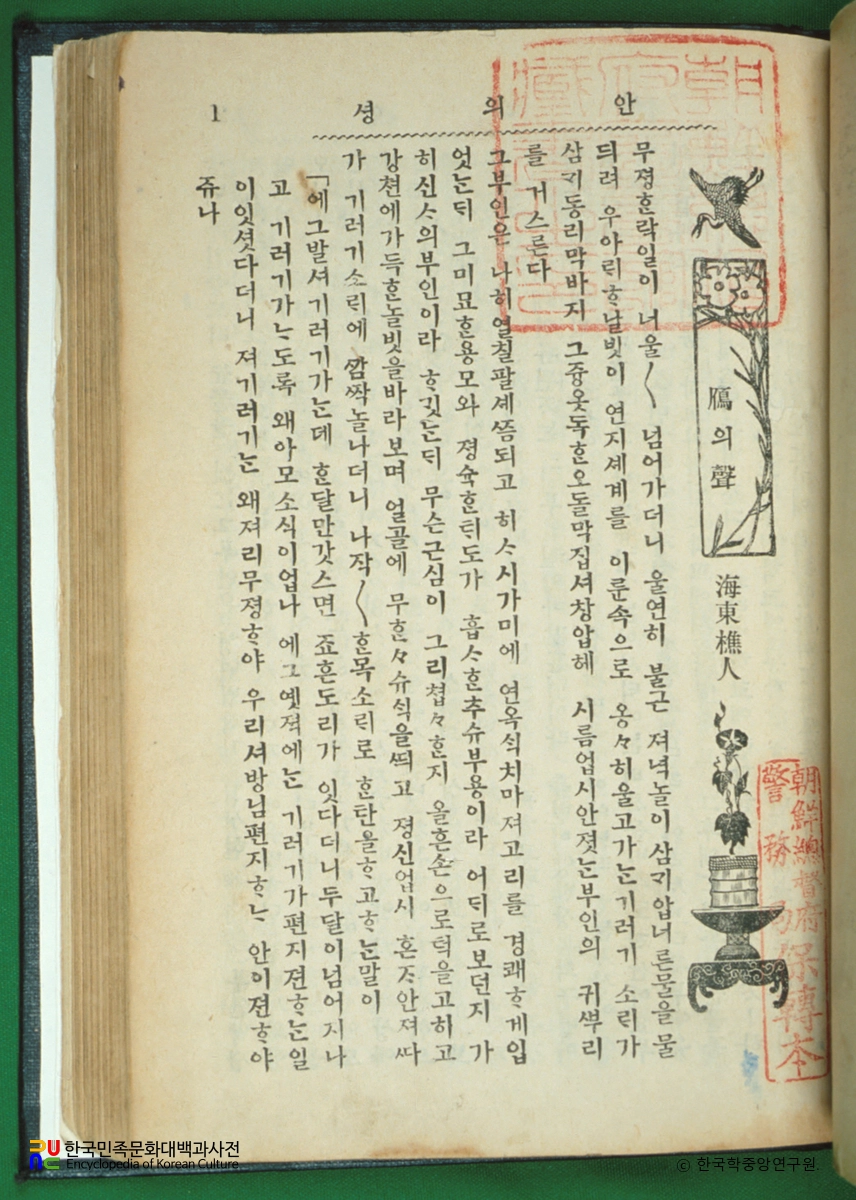 안의셩
1
鴈의聲
海東樵人
무졍ᄒᆞᆫ락일이 너울〱 넘어가더니 울연히 불근 져녁놀이 삼ᄀᆡ압너른물을 물
듸려 우아ᄅᆡᄒᆞ날빗이 연지셰계를 이룬속으로 옹々히울고가ᄂᆞᆫ기러기 소ᄅᆡ가
삼ᄀᆡ동리막바지 그즁옷독ᄒᆞᆫ오돌막집셔창압헤 시름업시안졋ᄂᆞᆫ부인의 귀ᄲᅮ리
를 거스른다
그부인은 나히열칠팔셰ᄶᅳᆷ되고 히ᄉᆞ시가미에 연옥ᄉᆡᆨ치마져고리를 경쾌ᄒᆞ게입
엇ᄂᆞᆫᄃᆡ 그미묘ᄒᆞᆫ용모와 졍슉ᄒᆞᆫᄐᆡ도가 흡ᄉᆞᄒᆞᆫ추슈부용이라 어ᄃᆡ로보던지 가
히신ᄉᆞ의부인이라 ᄒᆞ깃ᄂᆞᆫᄃᆡ 무슨근심이 그리쳡々ᄒᆞᆫ지 올흔손으로턱을고히고
강쳔에가득ᄒᆞᆫ놀빗을바라보며 얼골에 무ᄒᆞᆫ々슈식을ᄯᅴ고 졍신업시 혼ᄌᆞ안져ᄯᅡ
가 기러기소ᄅᆡ에 ᄭᅡᆷᄶᅡᆨ놀나더니 나작〱ᄒᆞᆫ목소ᄅᆡ로 ᄒᆞᆫ탄을ᄒᆞ고ᄒᆞᄂᆞᆫ말이
「에그발셔기러기가ᄂᆞᆫ데 ᄒᆞᆫ달만갓스면 죠흔도리가 잇다더니두달이넘어지나
고 기러기가ᄂᆞ도록 왜아모소식이업나 에그옛젹에ᄂᆞᆫ 기러기가편지젼ᄒᆞᄂᆞᆫ일
이잇셧다더니 져기러기ᄂᆞᆫ 왜져리무졍ᄒᆞ야 우리셔방님편지ᄒᆞᄂᆞ 안이젼ᄒᆞ야
쥬나
朝鮮總督府
警務局保轉本
한국민족문화대백과사전
Encyclopedia of Korean Culture
© 한국학중앙연구원